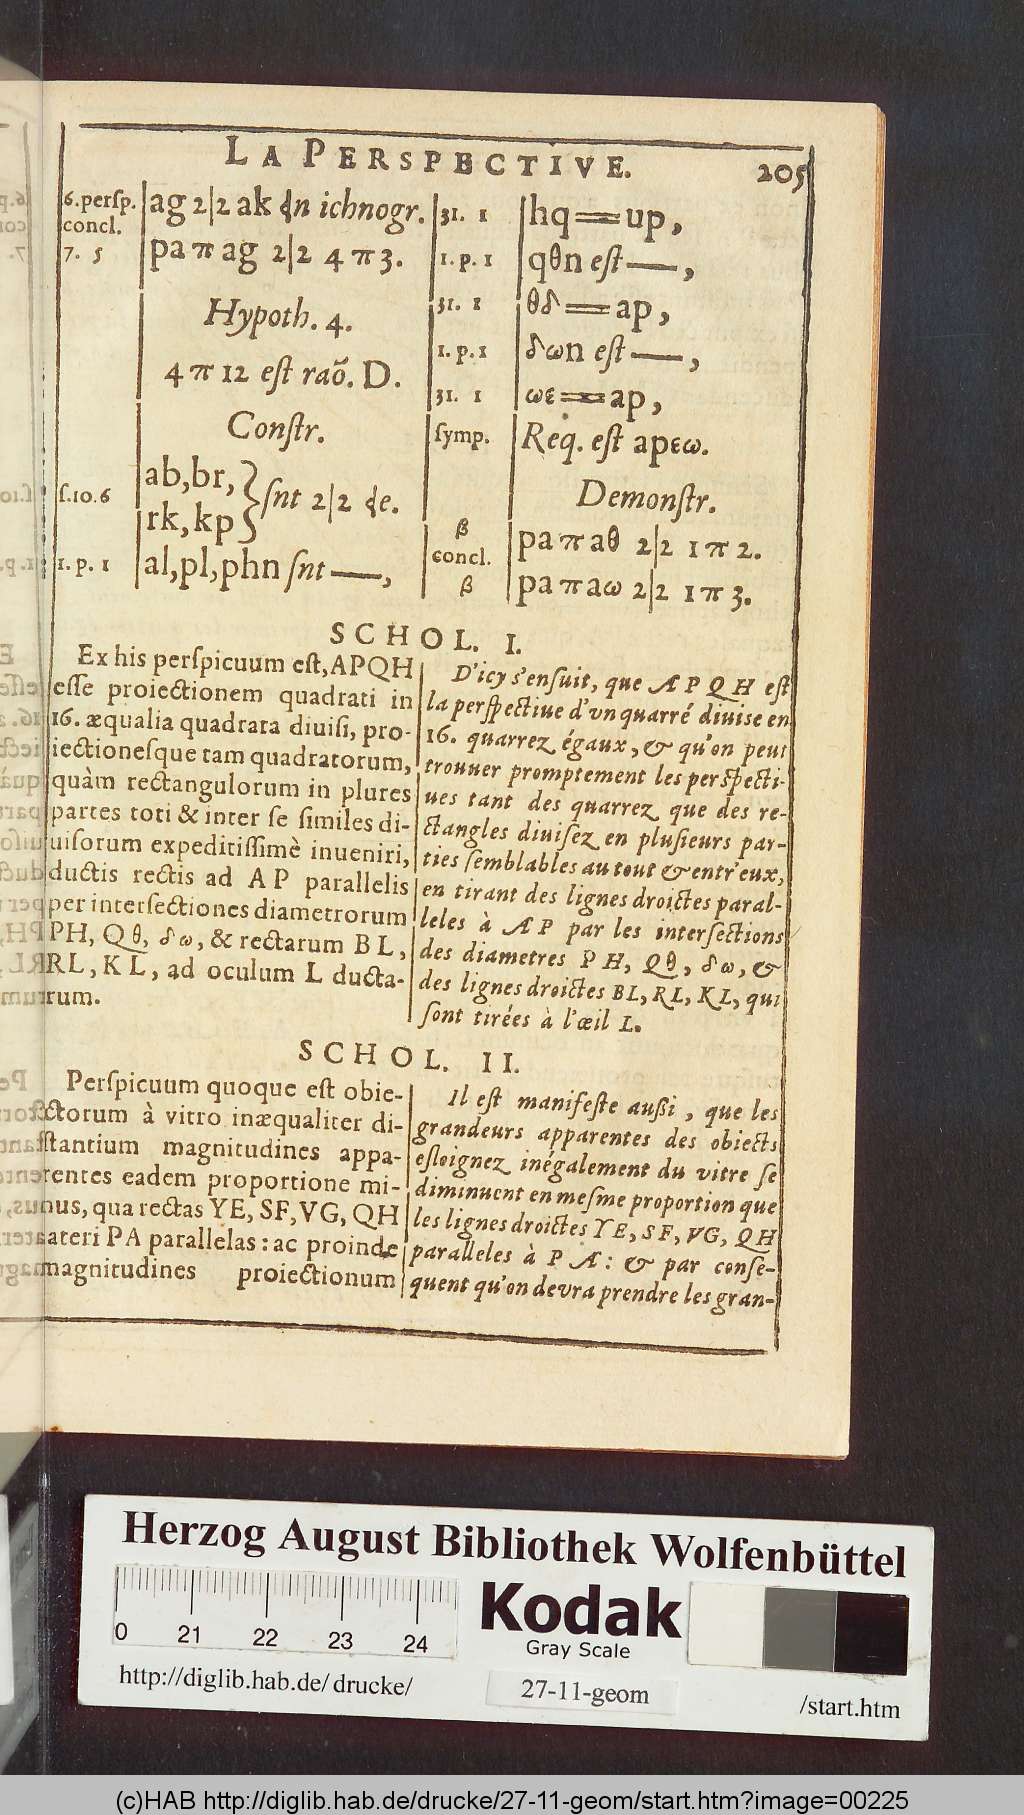 LA PERSPECTIVE. 205
6.persp. concl. ag 2|2 ak ꝺn ichnogr.
7. 5 pa π ag 2|2 4 π 3.
Hypoth. 4.
4 π 12 est raõ. D.
Constr.
ſ.10.6 ab,br, rk,kp } ſnt 2|2 ꝺe.
1. p. 1 al,pl,phn ſnt —,
31. 1 hq = up,
1. p. 1 qθn eſt —,
31. 1 θδ = ap,
1. p. 1 δωn eſt —,
31. 1 ωε = ap,
ſymp. Req. eſt apεω.
Demonſtr.
β pa π aθ 2|2 1 π 2.
concl.
β pa π aω 2|2 1 π 3.
SCHOL. I.
Ex his perſpicuum eſt, APQH
eſſe proiectionem quadrati in
16. æqualia quadrata diuiſi, pro-
iectioneſque tam quadratorum,
quàm rectangulorum in plures
partes toti & inter ſe ſimiles di-
uiſorum expeditiſſimè inueniri,
ductis rectis ad AP parallelis
per interſectiones diametrorum
PH, Qθ, δω, & rectarum BL,
RL, KL, ad oculum L ducta-
rum.
D'icy s'enſuit, que APQH eſt
la perſpectiue d'vn quarré diuise en
16. quarrez égaux, & qu'on peut
trouuer promptement les perſpecti-
ues tant des quarrez que des re-
ctangles diuiſez en pluſieurs par-
ties ſemblables au tout & entr'eux,
en tirant des lignes droictes paral-
leles à AP par les interſections
des diametres PH, Qθ, δω, &
des lignes droictes BL, RL, KL, qui
ſont tirées à l'œil L.
SCHOL. II.
Perſpicuum quoque eſt obie-
ctorum à vitro inæqualiter di-
ſtantium magnitudines appa-
rentes eadem proportione mi-
nus, qua rectas YE, SF, VG, QH
lateri PA parallelas : ac proinde
magnitudines proiectionum
Il eſt manifeſte außi, que les
grandeurs apparentes des obiects
eſloignez inégalement du vitre ſe
diminuent en meſme proportion que
les lignes droictes YE, SF, VG, QH
paralleles à PA : & par conſe-
quent qu'on devra prendre les gran-
Herzog August Bibliothek Wolfenbüttel
0 21 22 23 24
Kodak
Gray Scale
http://diglib.hab.de/ drucke/ 27-11-geom /start.htm
(c)HAB http://diglib.hab.de/drucke/27-11-geom/start.htm?image=00225